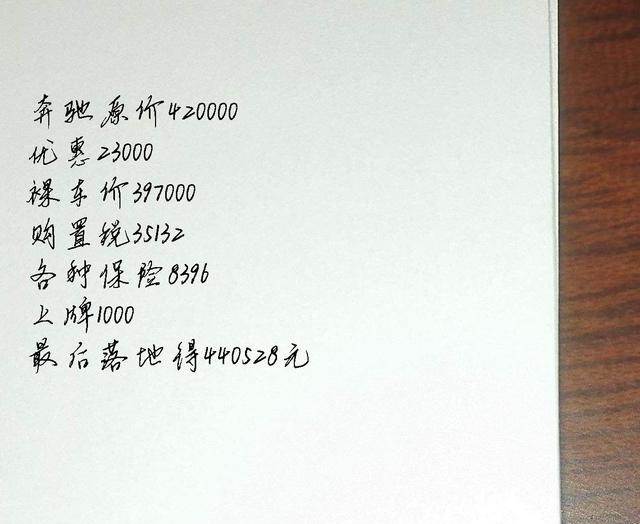 奔驰原价420000
优惠23000
裸车价397000
购置税35132
各种保险8396
上牌1000
最后落地得440528元